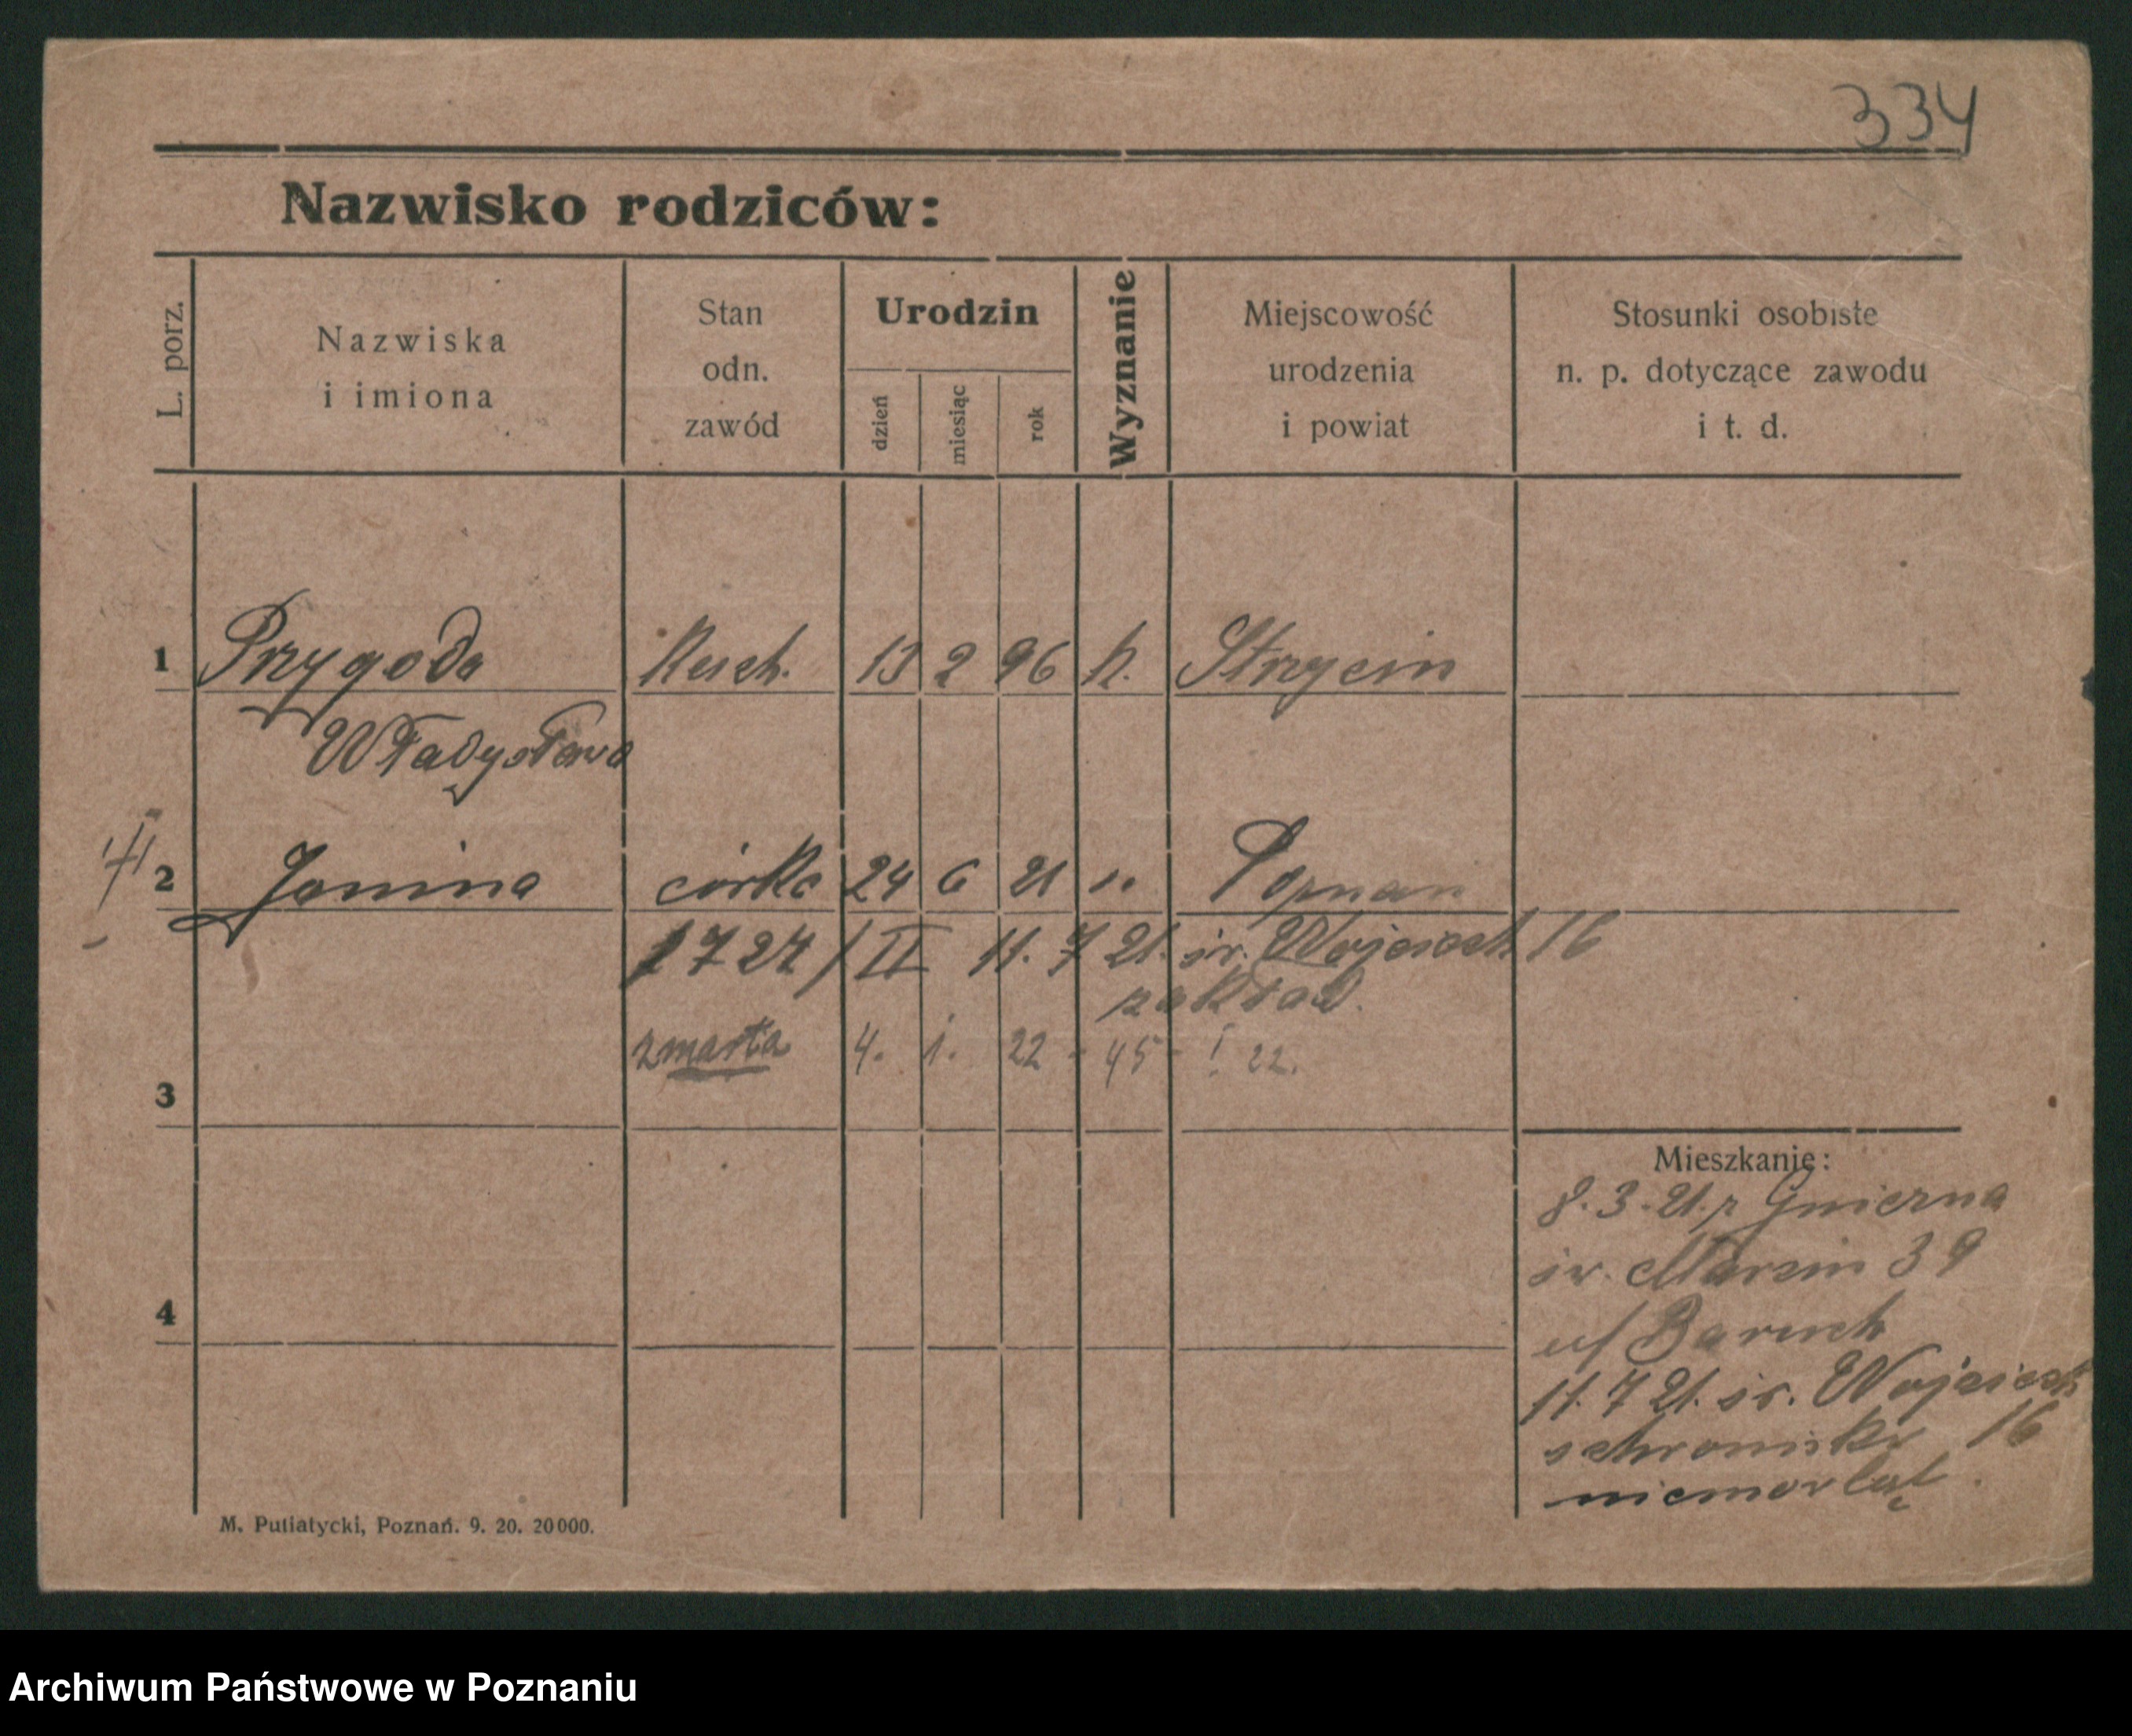 334
Nazwisko rodziców:
L. porz.
Nazwiska
i imiona
Stan
odn.
zawód
Urodzin
dzień
miesiąc
rok
Wyznanie
Miejscowość
urodzenia
i powiat
Stosunki osobiste
n. p. dotyczące zawodu
i t. d.
1 Przygoda Kuch. 13 2 96 k. Strzycin
Władysława
2 Janina córka 24 6 21 " Poznan
1727/II 11. 7 21. św. Wojciech 16
zakład.
zmarła 4. 1. 22 - 45 - I 22.
3
4
Mieszkanie:
8. 3. 21. z Gniezna
św. Marcin 39
u/ Baruch
11. 7 21. św. Wojciech
schronisko 16
niemowląt.
M. Putiatycki, Poznań. 9. 20. 20000.
Archiwum Państwowe w Poznaniu